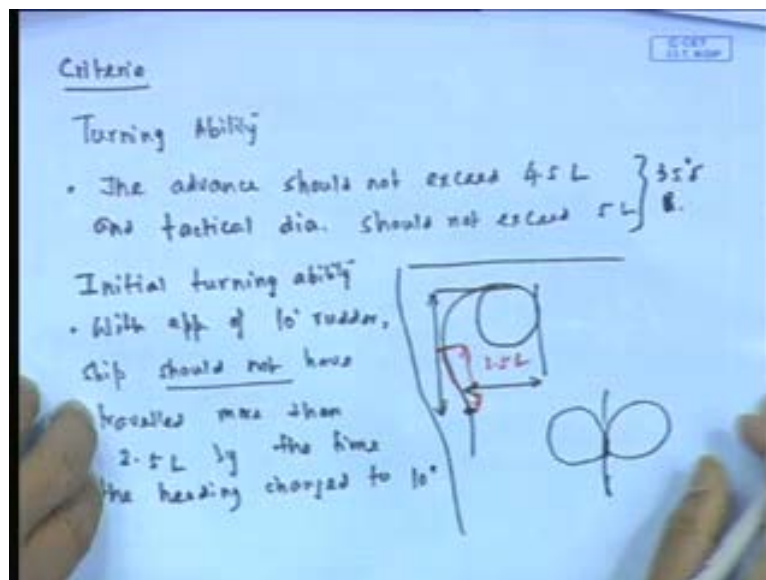 C CET
I.I.T. KGP
Criteria
Turning Ability
• The advance should not exceed 4.5 L
and tactical dia. should not exceed 5 L } 35°δ
Initial turning ability
• With app of 10° rudder,
ship should not have
travelled more than
2.5 L by the time
the heading changed to 10°
2.5 L